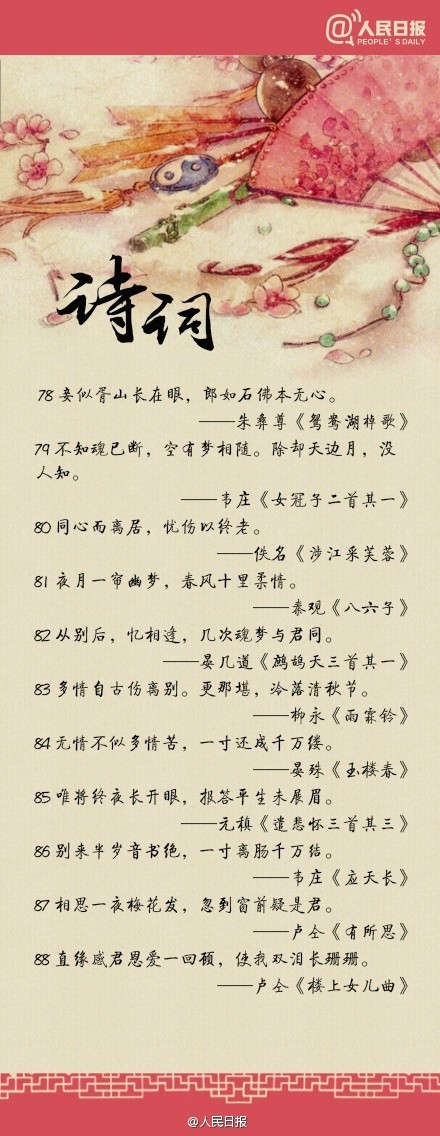 @人民日报
PEOPLE'S DAILY
诗词
78 妾似胥山长在眼，郎如石佛本无心。
——朱彝尊《鸳鸯湖棹歌》
79 不知魂已断，空有梦相随。除却天边月，没
人知。
——韦庄《女冠子二首其一》
80 同心而离居，忧伤以终老。
——佚名《涉江采芙蓉》
81 夜月一帘幽梦，春风十里柔情。
——秦观《八六子》
82 从别后，忆相逢，几次魂梦与君同。
——晏几道《鹧鸪天三首其一》
83 多情自古伤离别。更那堪，冷落清秋节。
——柳永《雨霖铃》
84 无情不似多情苦，一寸还成千万缕。
——晏殊《玉楼春》
85 唯将终夜长开眼，报答平生未展眉。
——元稹《遣悲怀三首其三》
86 别来半岁音书绝，一寸离肠千万结。
——韦庄《应天长》
87 相思一夜梅花发，忽到窗前疑是君。
——卢仝《有所思》
88 直缘感君恩爱一回顾，使我双泪长珊珊。
——卢仝《楼上女儿曲》
@人民日报